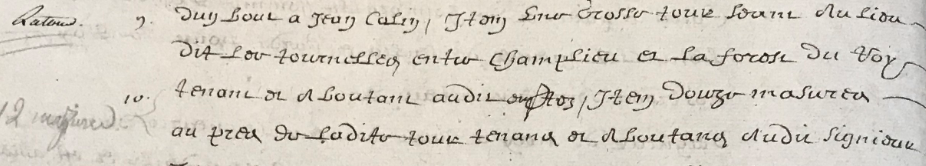 Latour. 9. Dun bout a Jean Calin, Item une grosse tour seant au lieu
dit les tournelles entre Champlieu et la forest du Roy
10. tenant et aboutant audit Item douze masures
12 masures au pres de ladite tour tenans et aboutans audit signieur